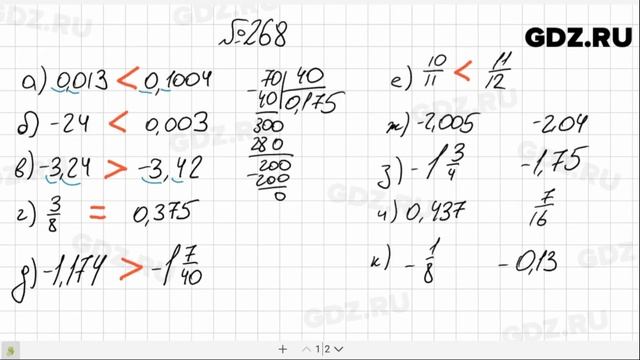 №268
GDZ.RU
а) 0,013 < 0,1004
б) -24 < 0,003
в) -3,24 > -3,42
г) 3/8 = 0,375
д) -1,174 > -1 7/40
-70 | 40
40 | 0,175
300
280
-200
-200
0
е) 10/11 < 11/12
ж) -2,005 -204
з) -1 3/4 -1,75
и) 0,437 7/16
к) -1/8 -0,13
1|2